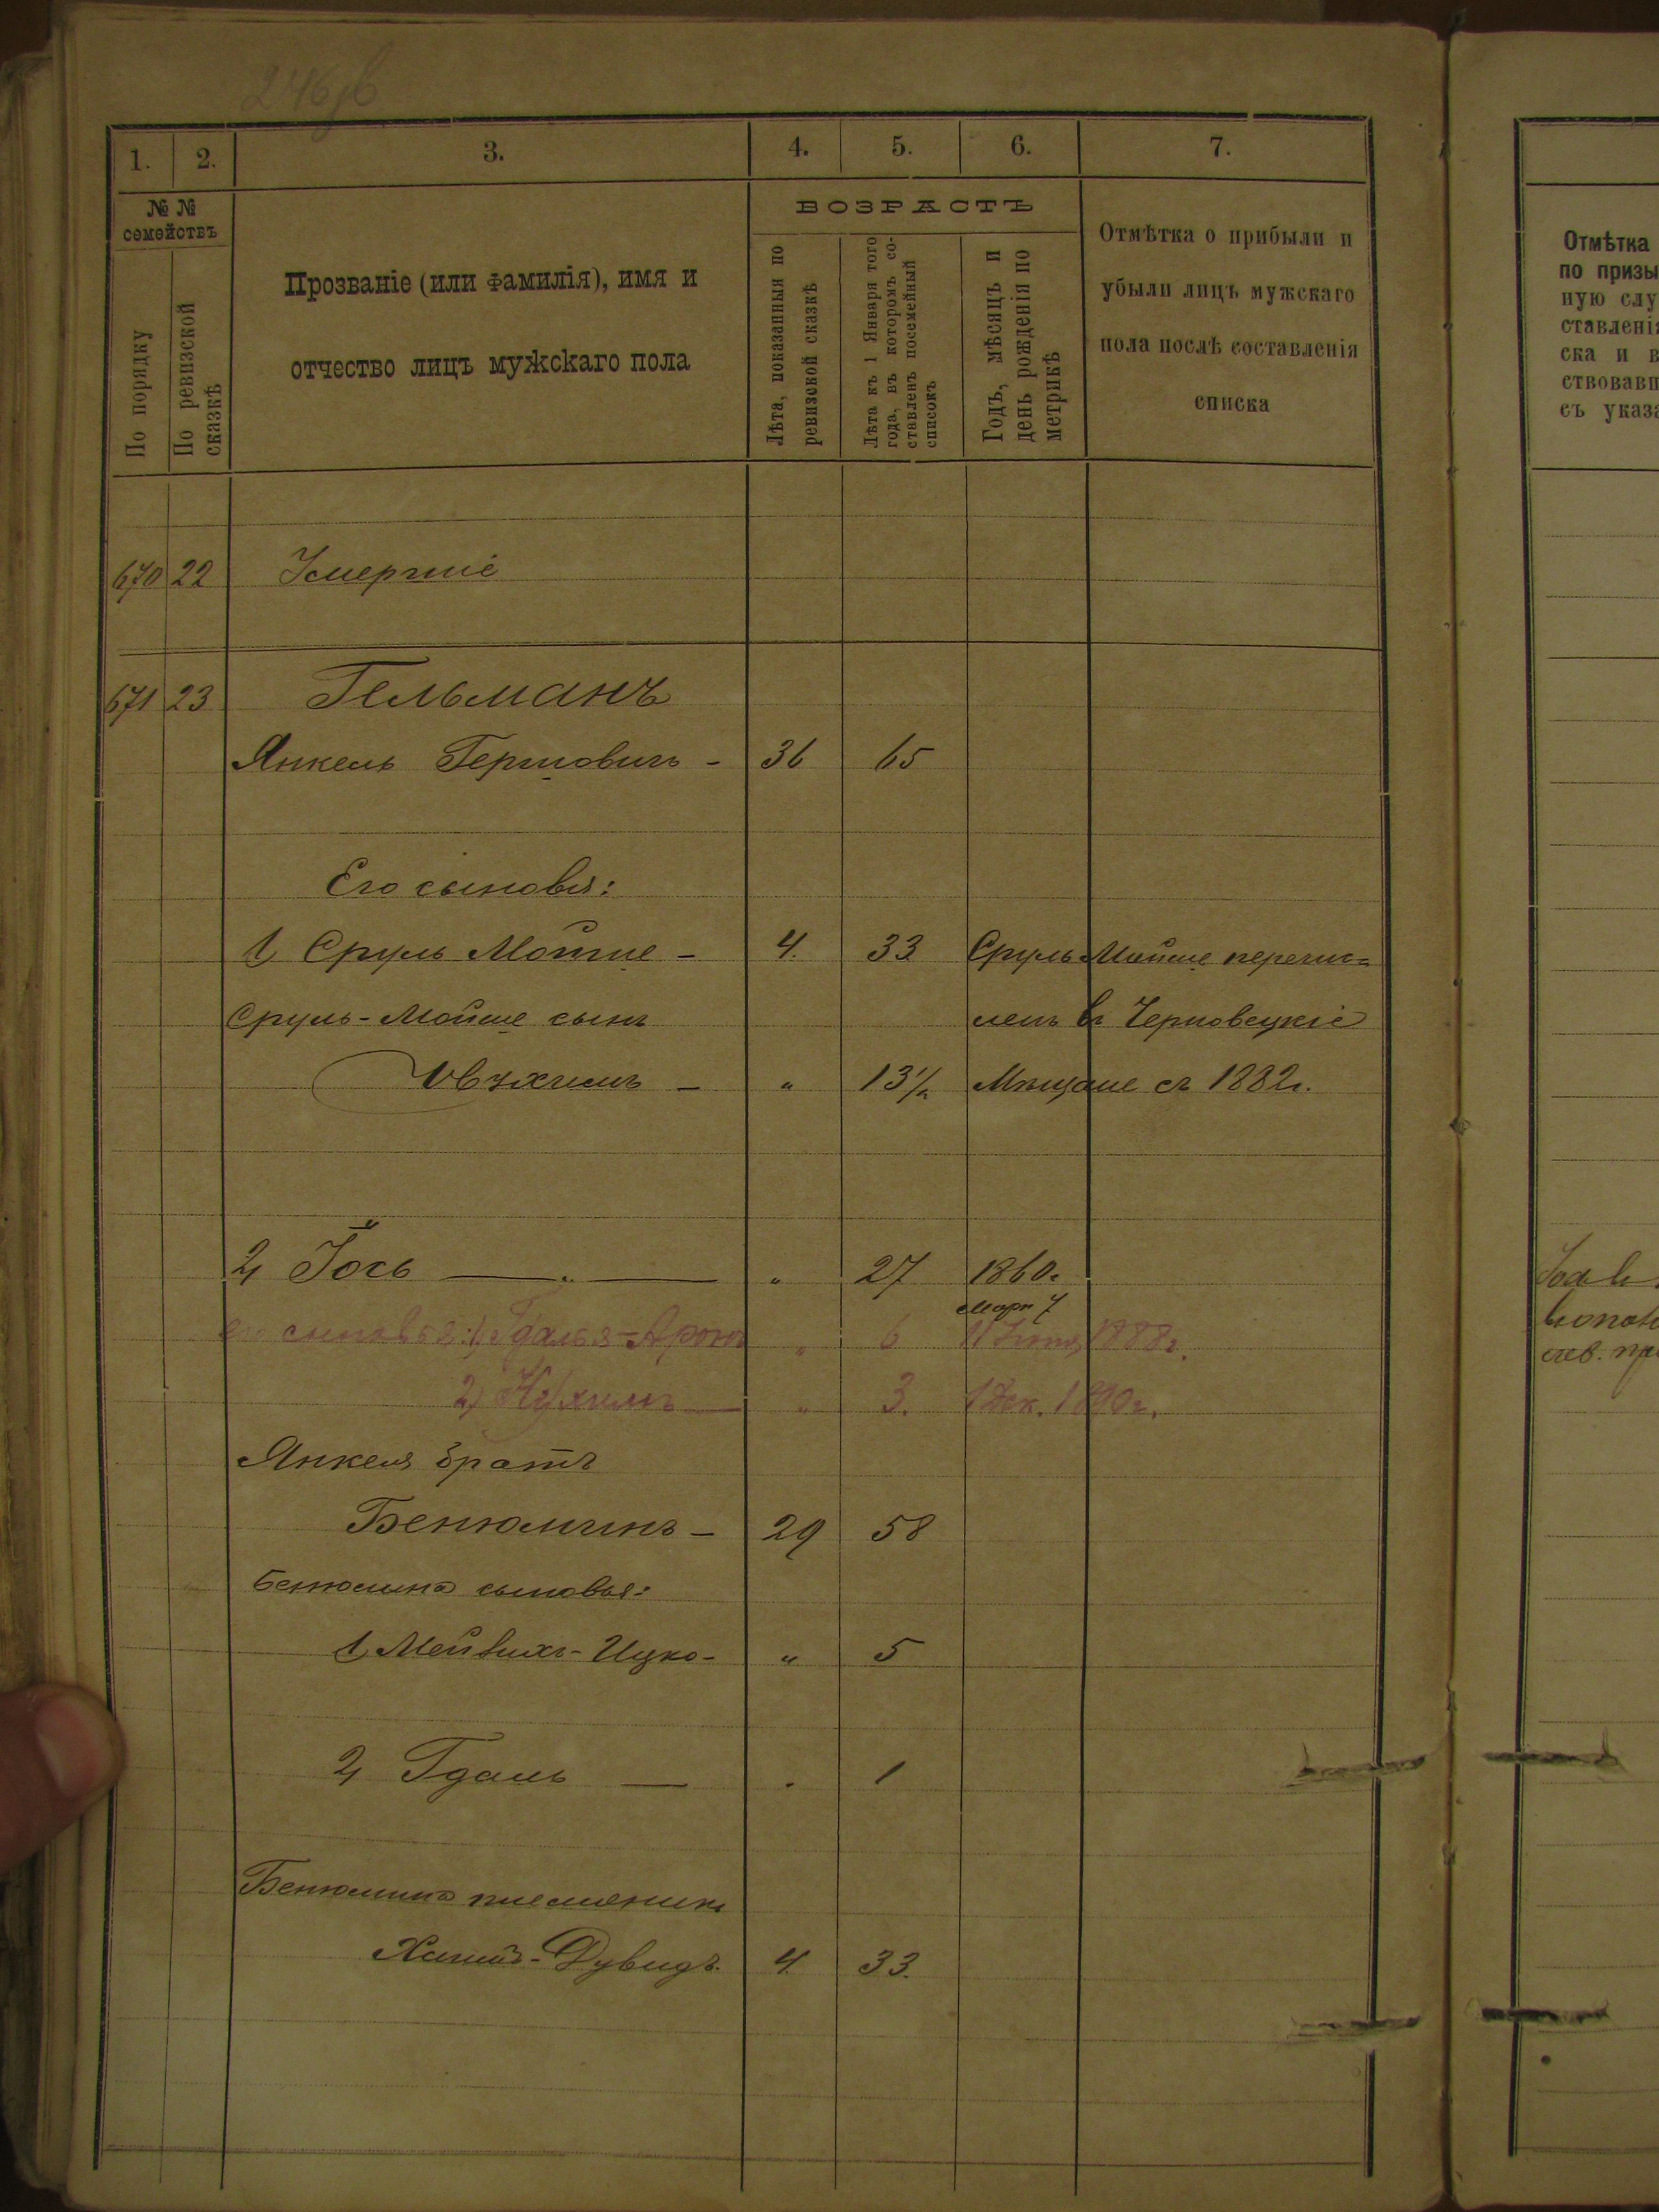 246
1. 2. 3. 4. 5. 6. 7.
№ № семействъ
По порядку
По ревизской сказкѣ
Прозваніе (или фамилія), имя и
отчество лицъ мужскаго пола
ВОЗРАСТЪ
Лѣта, показанныя по ревизской сказкѣ
Лѣта къ 1 Января того года, въ которомъ составленъ посемейный списокъ
Годъ, мѣсяцъ и день рожденія по метрикѣ
Отмѣтка о прибыли и
убыли лицъ мужскаго
пола послѣ составленія
списка
670 22 Умершіе
671 23 Гельманъ
Янкель Гершовичъ - 36 65
Его сыновья:
1, Сруль Мойше - 4. 33 Сруль Мойше перечис=
Сруль-Мойше сынъ ленъ въ Черновецкіе
" 13½ Мѣщане съ 1882г.
2, Іось " 27 1860г.
Март 7
его сыновья: 1, Гдалья-Аронъ " 6 1888г.
2, Нухимъ " 3. 1 Дек. 1890г.
Янкеля братъ
Бенюминъ - 29 58
Бенюмина сыновья:
1, Мейвихъ-Ицко - " 5
2, Гдаль — " 1
Бенюмина племяникъ
Хаимъ-Дувидъ. 4. 33.
Отмѣтка
по призы
ную слу
ставлені
ска и в
ствовавш
съ указа